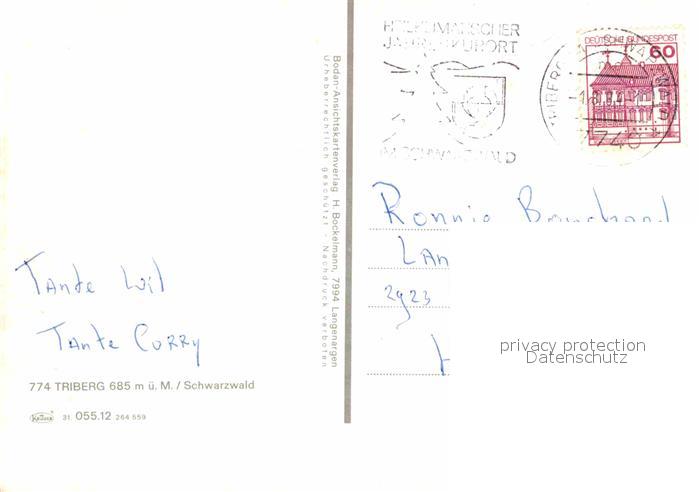 HEILKLIMATISCHER
JAHRESKURORT
IM SCHWARZWALD
DEUTSCHE BUNDESPOST
60
TRIBERG IM SCHWARZWALD
7740
Bodan-Ansichtskartenverlag H. Bockelmann, 7994 Langenargen
Urheberrechtlich geschützt - Nachdruck verboten
Ronnie
LAN
2923
Tante Wil
Tante Corry
privacy protection
Datenschutz
774 TRIBERG 685 m ü. M. / Schwarzwald
KRÜGER 31. 055.12 264 559